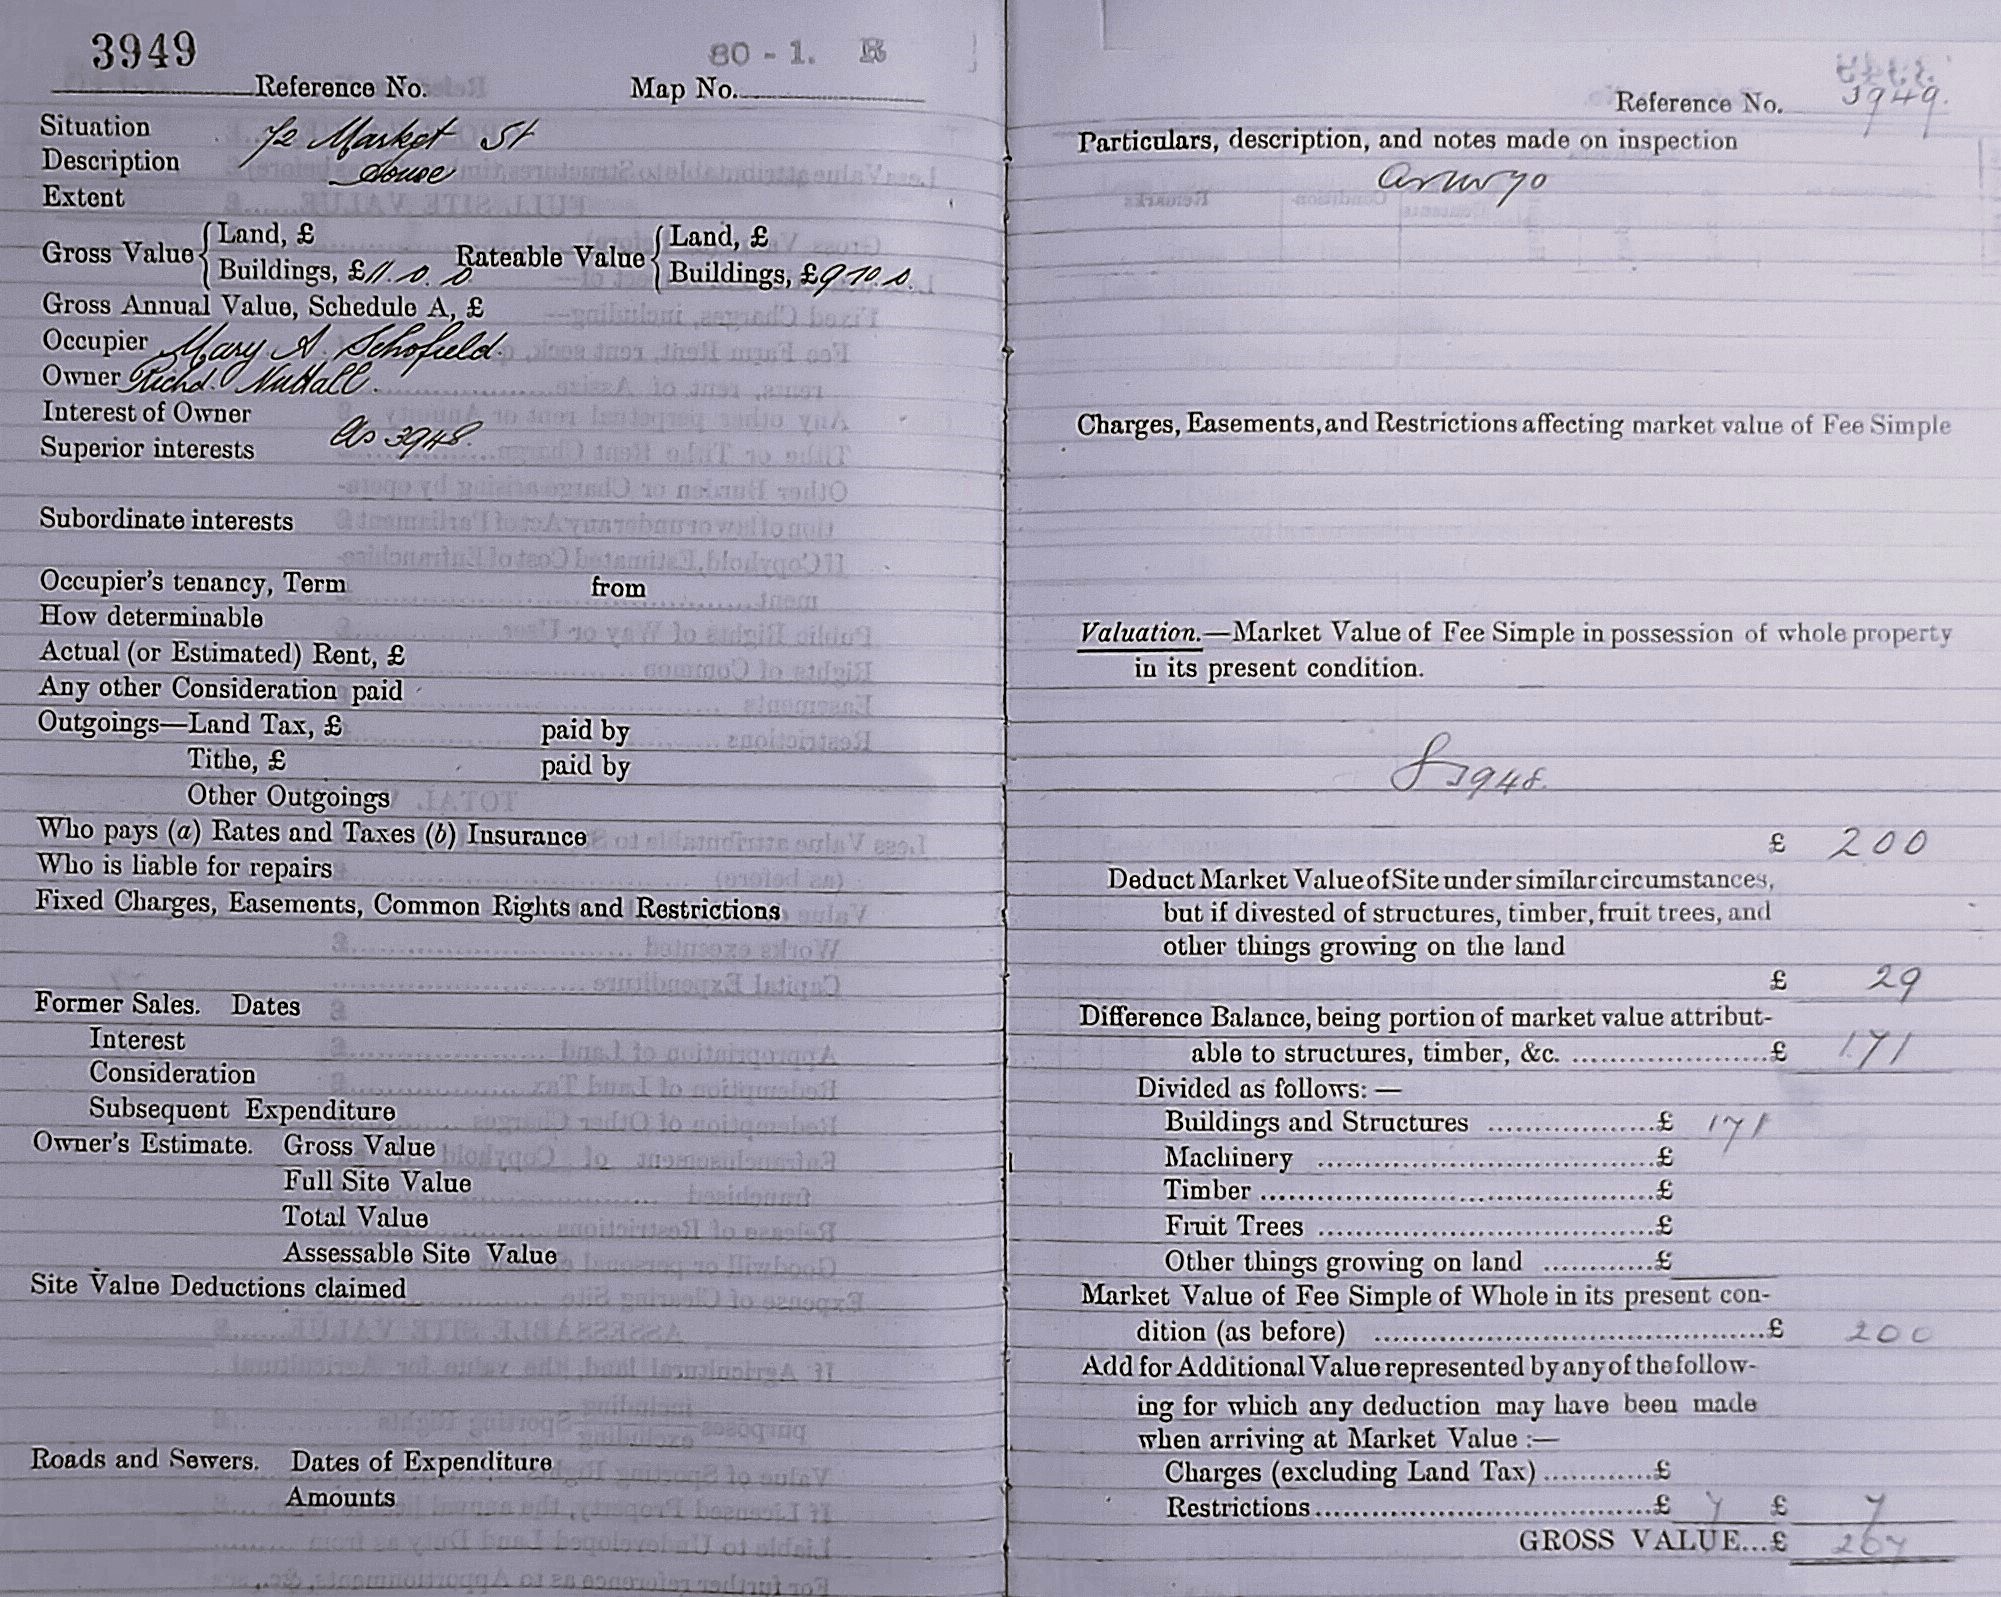 3949
80 - 1. B
Reference No.
Map No.
Situation 72 Market St
Description House
Extent
Gross Value { Land, £
Buildings, £ 11. 0. 0
Rateable Value { Land, £
Buildings, £ 9 10. 0.
Gross Annual Value, Schedule A, £
Occupier Mary A. Schofield.
Owner Richd. Nuttall.
Interest of Owner
As 3948.
Superior interests
Subordinate interests
Occupier's tenancy, Term from
How determinable
Actual (or Estimated) Rent, £
Any other Consideration paid
Outgoings—Land Tax, £ paid by
Tithe, £ paid by
Other Outgoings
Who pays (a) Rates and Taxes (b) Insurance
Who is liable for repairs
Fixed Charges, Easements, Common Rights and Restrictions
Former Sales. Dates
Interest
Consideration
Subsequent Expenditure
Owner's Estimate. Gross Value
Full Site Value
Total Value
Assessable Site Value
Site Value Deductions claimed
Roads and Sewers. Dates of Expenditure
Amounts
Reference No. 3949.
Particulars, description, and notes made on inspection
Charges, Easements, and Restrictions affecting market value of Fee Simple
Valuation.—Market Value of Fee Simple in possession of whole property
in its present condition.
3948.
£ 200
Deduct Market Value of Site under similar circumstances,
but if divested of structures, timber, fruit trees, and
other things growing on the land
£ 29
Difference Balance, being portion of market value attribut-
able to structures, timber, &c. £ 171
Divided as follows: —
Buildings and Structures £ 171
Machinery £
Timber £
Fruit Trees £
Other things growing on land £
Market Value of Fee Simple of Whole in its present con-
dition (as before) £ 200
Add for Additional Value represented by any of the follow-
ing for which any deduction may have been made
when arriving at Market Value :—
Charges (excluding Land Tax) £
Restrictions £ 7 £ 7
GROSS VALUE...£ 207